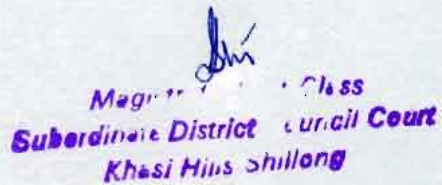 Magistrate Class
Subordinate District Council Court
Khasi Hills Shillong